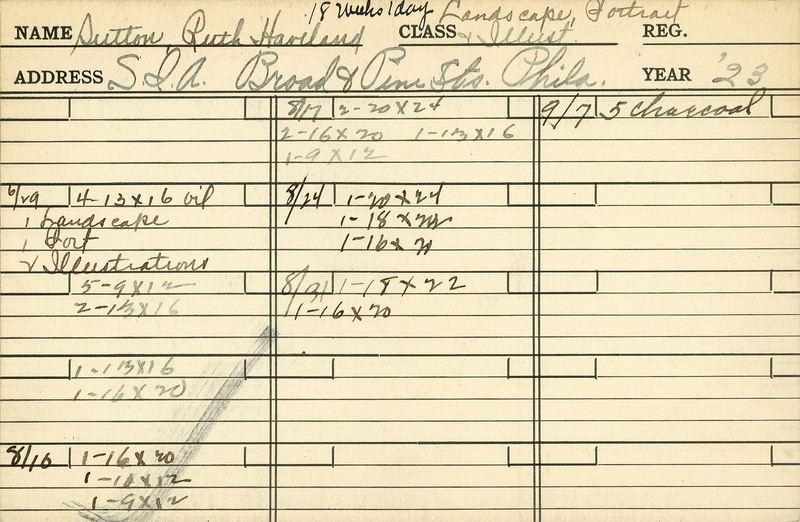 18 weeks 1 day Landscape, Portrait
NAME Sutton, Ruth Haviland CLASS & Illust. REG.
ADDRESS S.I.A. Broad & Pine Sts. Phila. YEAR '23
6/29 4-13x16 oil
1 Landscape
1 Port
2 Illustrations
5-9x12
2-13x16
1-13x16
1-16x20
8/10 1-16x20
1-10x12
1-9x12
8/17 2-20x24
2-16x20 1-13x16
1-9x12
8/24 1-20x24
1-18x22
1-16x20
8/31 1-18x22
1-16x20
9/7 5 charcoal